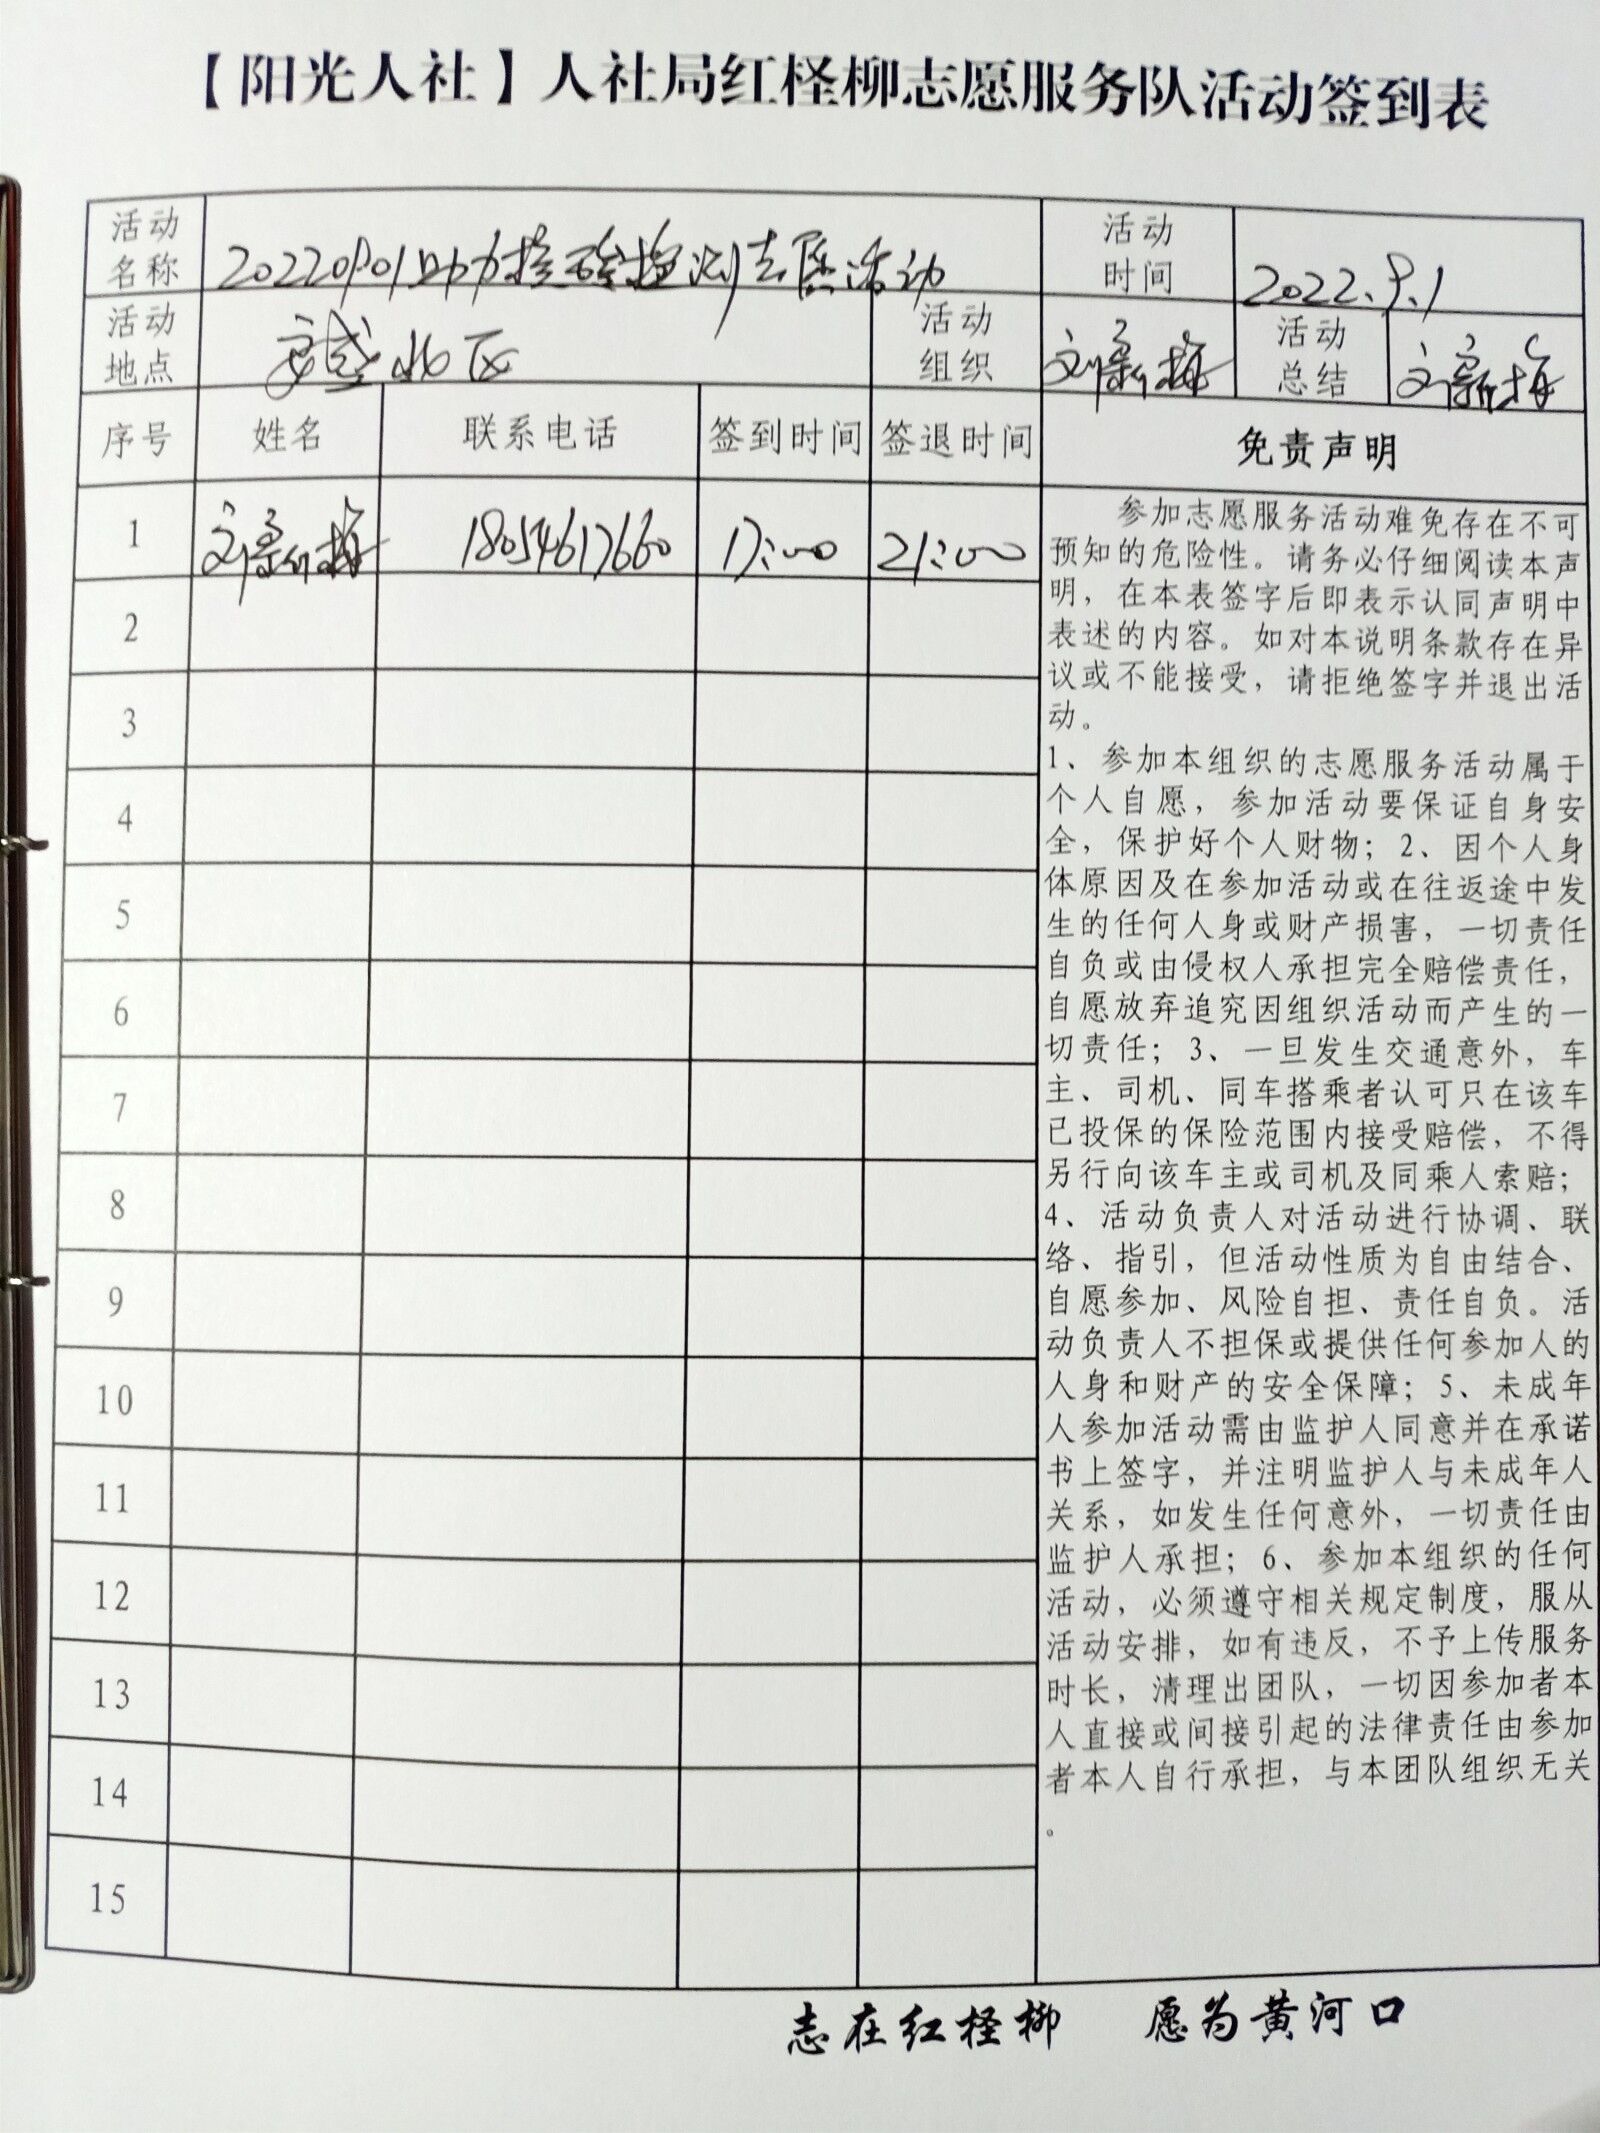 【阳光人社】人社局红柽柳志愿服务队活动签到表
活动名称 20220901助力核酸检测志愿活动 活动时间 2022.9.1
活动地点 安盛北区 活动组织 刘新梅 活动总结 刘新梅
序号 姓名 联系电话 签到时间 签退时间 免责声明
1 刘新梅 18054617660 17:00 21:00
2
3
4
5
6
7
8
9
10
11
12
13
14
15
参加志愿服务活动难免存在不可
预知的危险性。请务必仔细阅读本声
明，在本表签字后即表示认同声明中
表述的内容。如对本说明条款存在异
议或不能接受，请拒绝签字并退出活
动。
1、参加本组织的志愿服务活动属于
个人自愿，参加活动要保证自身安
全，保护好个人财物；2、因个人身
体原因及在参加活动或在往返途中发
生的任何人身或财产损害，一切责任
自负或由侵权人承担完全赔偿责任，
自愿放弃追究因组织活动而产生的一
切责任；3、一旦发生交通意外，车
主、司机、同车搭乘者认可只在该车
已投保的保险范围内接受赔偿，不得
另行向该车主或司机及同乘人索赔；
4、活动负责人对活动进行协调、联
络、指引，但活动性质为自由结合、
自愿参加、风险自担、责任自负。活
动负责人不担保或提供任何参加人的
人身和财产的安全保障；5、未成年
人参加活动需由监护人同意并在承诺
书上签字，并注明监护人与未成年人
关系，如发生任何意外，一切责任由
监护人承担；6、参加本组织的任何
活动，必须遵守相关规定制度，服从
活动安排，如有违反，不予上传服务
时长，清理出团队，一切因参加者本
人直接或间接引起的法律责任由参加
者本人自行承担，与本团队组织无关
。
志在红柽柳 愿为黄河口